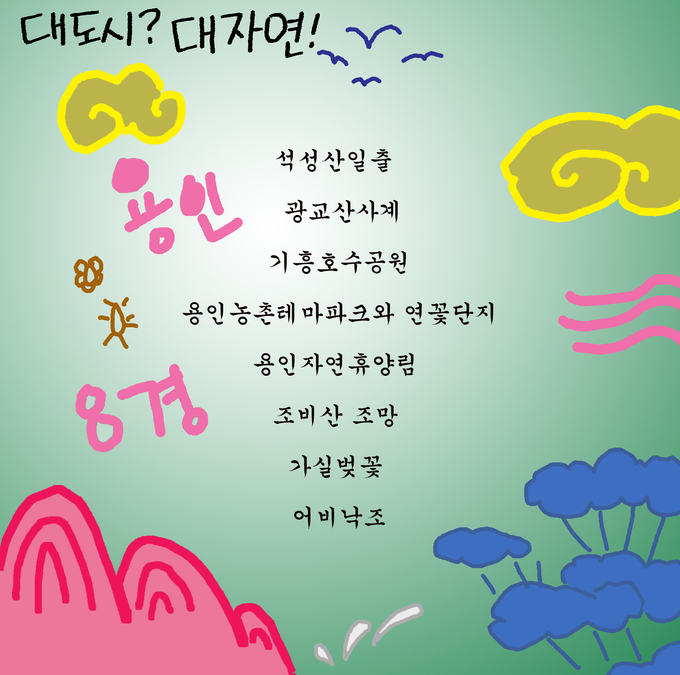 대도시? 대자연!
용인
8경
석성산일출
광교산사계
기흥호수공원
용인농촌테마파크와 연꽃단지
용인자연휴양림
조비산 조망
가실벚꽃
어비낙조